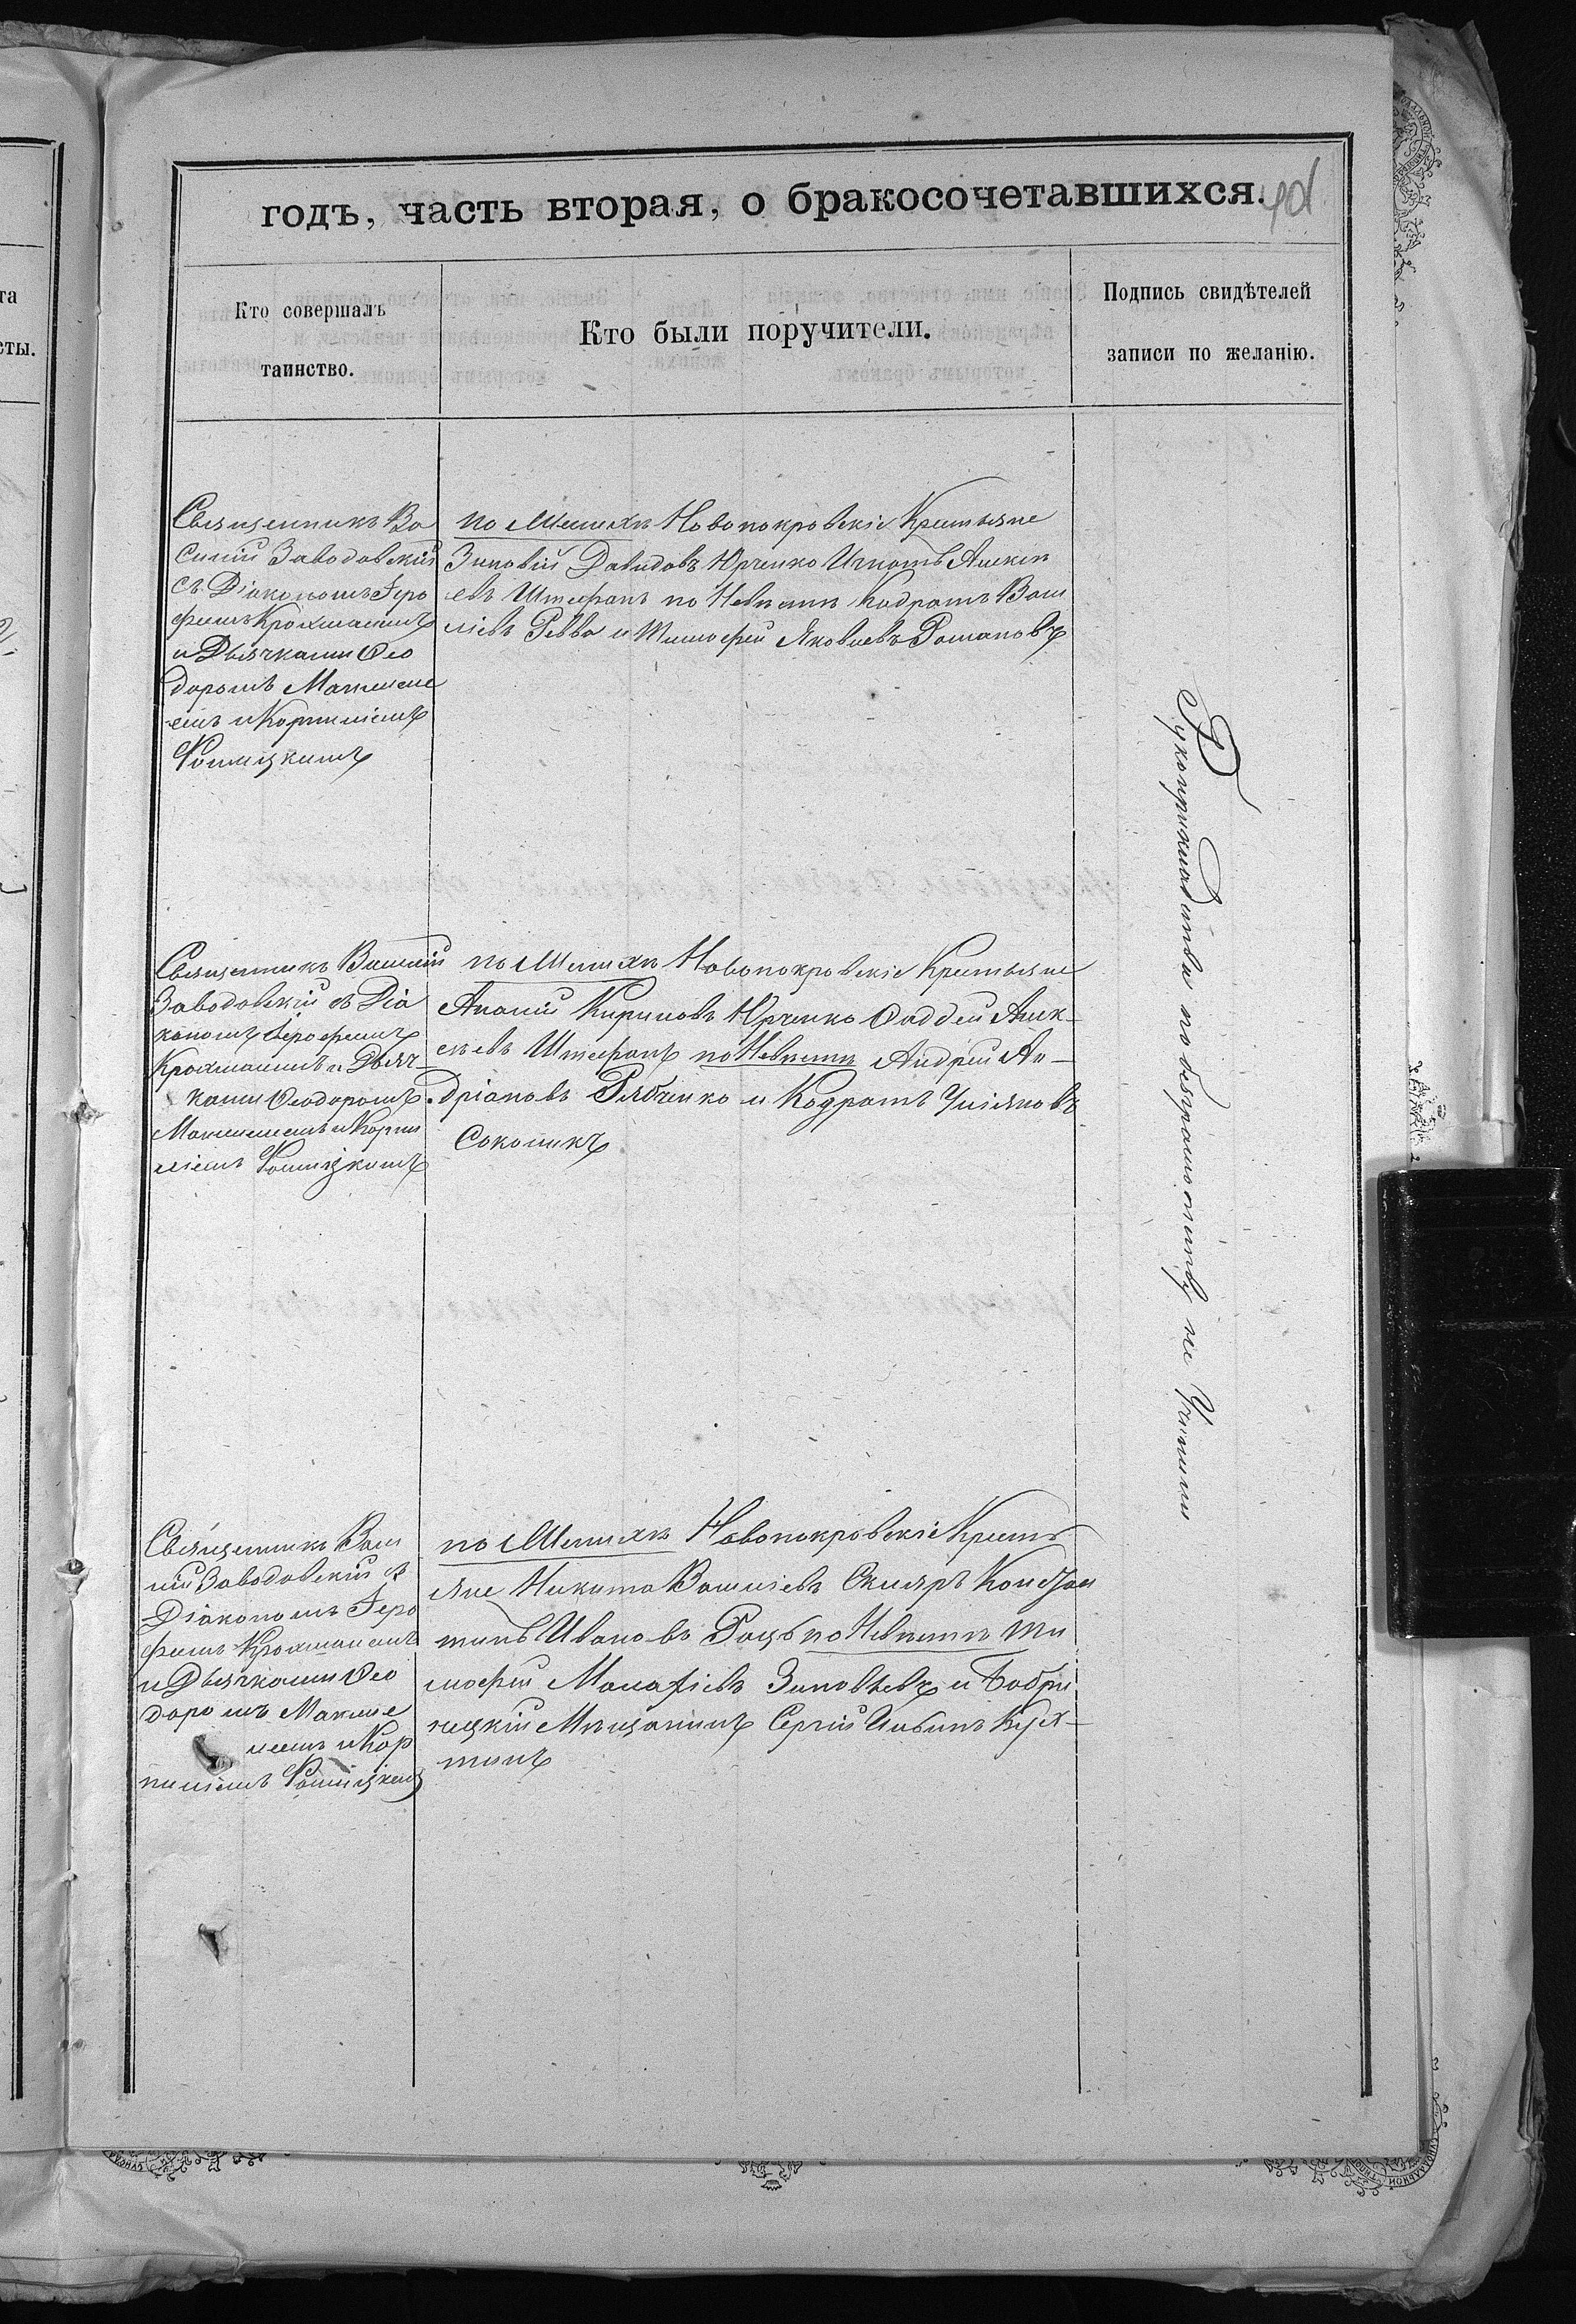 годъ, часть вторая, о бракосочетавшихся.
Кто совершалъ
таинство.
Кто были поручители.
Подпись свидѣтелей
записи по желанію.
Священникъ Ва
силій Заводовскій
съ Діакономъ Іеро
феемъ Крохмалемъ
и Дьячками Ѳео
доромъ
емъ и Корниліемъ
по Женихѣ Новопокровскіе Крестьяне
Зиновій Давидовъ Юрченко Игнатъ Алексѣ
евъ Штефанъ по Невѣстѣ Кодратъ Васи
ліевъ Ревва и Тимофей Яковлевъ Романовъ
Священникъ Василій
Заводовскій съ Діа
кономъ Іерофеемъ
Крохмалемъ и Дьяч-
ками Ѳеодоромъ
и Корни
ліемъ
по Женихѣ Новопокровскіе Крестьяне
Ананій Кириловъ Юрченко Ѳаддей Алек-
сѣевъ Штефанъ по Невѣстѣ Андрей Ан-
дріановъ Рябченко и Кодратъ Уліяновъ
Соколикъ
Священникъ Васи
лій Заводовскій съ
Діакономъ Іеро
феемъ Крохмалемъ
и Дьячками Ѳео
доромъ
и Кор
ниліемъ
по Женихѣ Новопокровскіе Кресть
яне Никита Василіевъ Скляръ Констан
тинъ Ивановъ по Невѣстѣ Ти
мофей Малафіевъ Зиновьевъ и Бобри
нецкій Мѣщанинъ Сергій
Рукоприкладства по безграмотству не Учинили